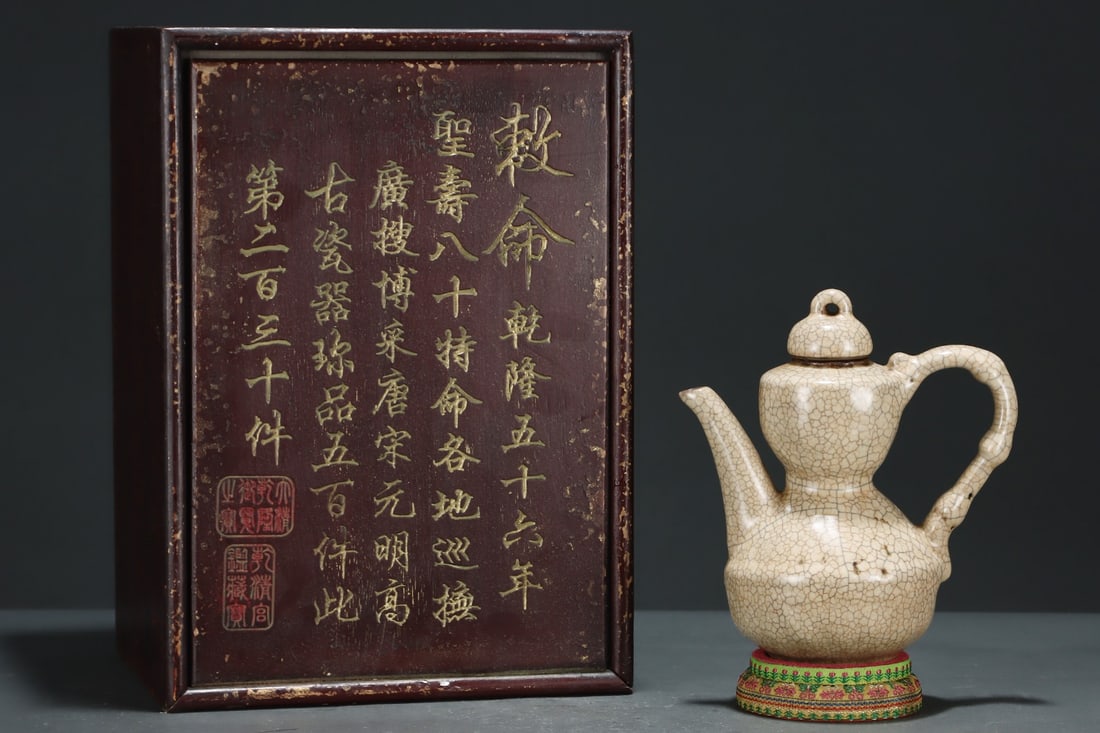 敕命乾隆五十六年
聖壽八十特命各地巡撫
廣搜博采唐宋元明高
古瓷器珎品五百件此
第二百三十件
大清
乾隆
御覽
之寶
乾清宮
鑑藏寶